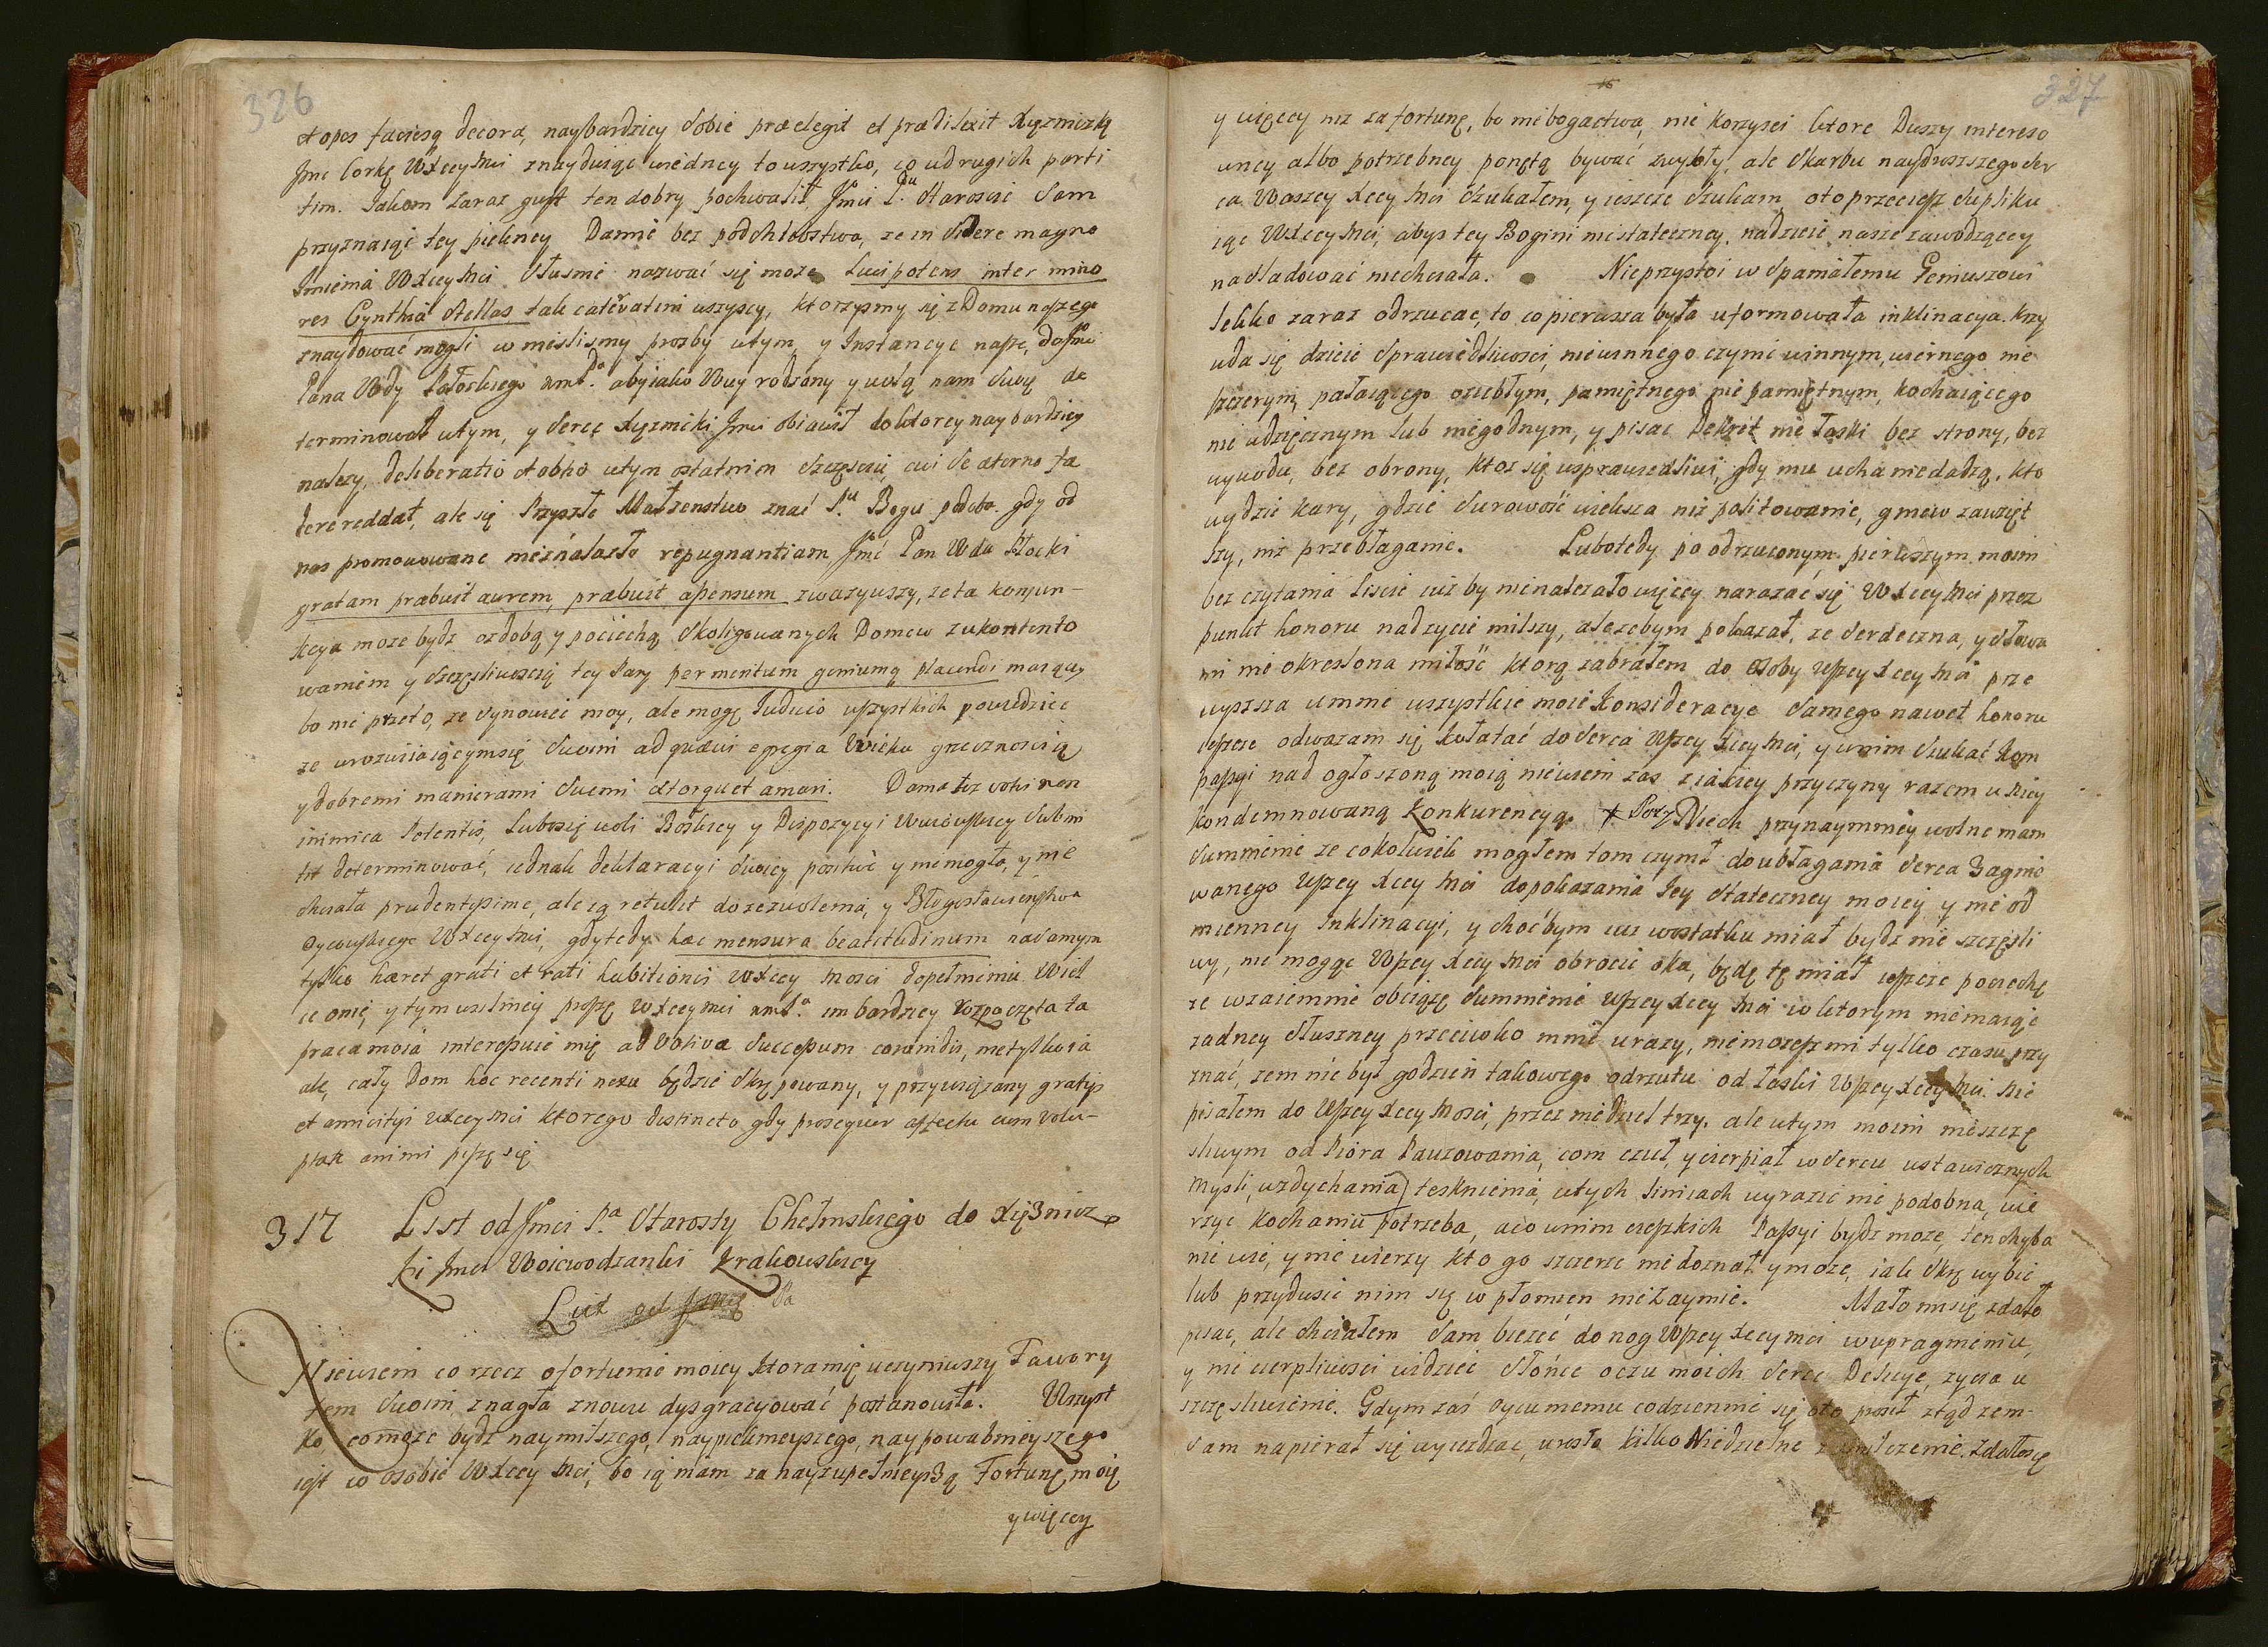 326
et opes faciesq decora, naybardziey sobie praelegit et praedilexit Xięzniczkę
Jmc Corkę WXcey Mci znayduiąc w iedney to wszystko, co u drugich parti
tim. Jakom zaraz gust ten dobry pochwalił Jmci Pu Starosćie Sam
przyznaiąc tey piekney Damie bez podchlebstwa, ze in sidere magno
Imienia WXcey Mci słusnie nazwać się moze Lucipotens inter mino
res Cynthia stellas tak catervatim wszyscy, ktorzysmy się z Domu naszego
znaydować mogli wnieslismy prozby w tym y Instancye nasze, do Jmci
Pana Wdy Kłockiego aby iako Wuy rodzony y wolą nam swoię de
terminował w tym, y serce Xięzniczki Jmci obiawił do ktorey naybardziey
nalezy, deliberatio et optio w tym ostatnim sczęsciu, cui se aeterno fae
dere reddat, ale się Przyszłe Małzenstwo znać Pu Bogu podoba gdy od
nas promowowane nieznalazło repugnantiam Jmć Pan Wda Płocki
gratam praebuit aurem, praebuit apensum zwazywszy, ze ta konjun-
kcya moze bydz ozdobą y pociechą skoligowanych Domow z ukontento
waniem y sczęsliwoscią tey Pary per meritum geniumq placendi maiący
bo nie przeto, ze synowiec moy, ale mogę Judicio wszystkich powiedziec
ze wrozwiiaiącymsię swoim ad quaevis egregia Wieku grzecznoscią
y dobremi manierami swemi extorquet amari. Dama tez votis non
inimica Petentis, Lubosię woli Boskiey y Dispozycyi Woiewskiey submi
tit determinować, iednak deklaracyi swoiey positive y niemogła, y nie
chciała prudentissime, ale ią retulit do zezwolenia, y Błogosławienstwa
Oycowskiego WXcey Mci, gdy tedy haec mensura beatitudinum na samym
tylko haeret grati et rati habitionis WXcey Mosci dopełnieniu Wiel
ce onię, y tym usilniey proszę WXceymci im bardziey rozpoczęta ta
praca moia interessuie mię ad votivae successum coronidis, nietylko ia
ale, cały Dom hoc recenti nexu będzie skrępowany, y przywiązany gratiis
et amicitiis WXceymci ktorego distincto gdy prosequor affectu cum volu-
ptate animi piszę się
317 List od Jmci Pa Starosty Chełmskiego do Xięznicz
ki Jmci Woiewodzanki Krakowskiey
List od Jmci Pa
Niewiem co rzecz o fortunie moiey ktora mię uczyniwszy Fawory
tem swoim z nagła znowu dysgracyować postanowiła. Wszyst
ko, co moze bydz naymilszego, naypiekneyszego, naypowabnieyszego
iest w osobie WXcey Mci, bo ią mam za nayzupełnieyszą Fortunę moię
y więcey
327
y więcey niz za fortunę, bo nie bogactwa, nie korzysci ktore Duszy intereso
wney albo potrzebney ponętą bywać zwykły, ale skarbu naydroszszego ser
ca Waszey Xcey Mci szukałem, y ieszcze szukam, oto przeciesz supliku
ię WXcey Mci, abys tey Bogini niestateczney, nadzieie nasze zawodzącey
nasladować niechciała. Nieprzystoi wspaniałemu Geniuszowi
lekko zaraz odrzucac, to co pierwsza była uformowała inklinacya. Krzy
wda się dzieie sprawiedliwosci, niewinnego czynić winnym, wiernego nie
szczerym, pałaiącego oziebłym, pamiętnego nie pamiętnym, kochaiącego
nie wdzięcznym lub niegodnym, y pisac Dekret nie łaski bez strony, bez
wywodu, bez obrony, ktoz się usprawiedliwi, gdy mu ucha niedadzą, kto
uydzie kary, gdzie surowość wieksza niż politowanie, gniew zawzięt
szy, niz przebłaganie. Lubotedy po odrzuconym pierwszym moim
bez czytania Liscie iuz by nienalezało więcey narazać się WXcey Mci przez
punkt honoru nad zycie milszy, alezebym pokazał, ze serdeczna, y słowa
mi nie okreslona miłość ktorą zabrałem do osoby Wszey Xcey Mci prze
wyzsza w mnie wszystkie moie konsideracye samego nawet honoru
ieszcze odwazam się kołatać do serca Wszey Xcey Mci, y w nim szukać kom
passyi nad ogłoszoną moią niewiem zas z iakiey przyczyny razem u niey
kondemnowaną konkurencyą. Niech przynaymniey wolne mam
sumnienie ze cokolwiek mogłem tom czynił do ubłagania serca zagnie
wanego Wszey Xcey Mci do pokazania Jey stateczney moiey y nie od
mienney Inklinacyi, y choćbym iuz wostatku miał bydz nie szczęsli
wy, nie mogąc Wszey Xcey Mci obrocić oka, będę tę miał ieszcze pociechę
ze wzaiemnie obciązę sumnienie Wszey Xcey Mci w ktorym niemaiąc
zadney słuszney przeciwko mnie urazy, niemozesz mi tylko czasu przy
znać, zem nie był godzien takowego odrzutu od łaski Wszey Xcey Mci. Nie
pisałem do Wszey Xcey Mosci, przez niedziel trzy, ale w tym moim nieszczę
sliwym od Piora Pauzowania, com czuł, y cierpiał w sercu ustawicznych
mysli, wzdychania) tesknienia, w tych Liniach wyrazić nie podobna, wie
rzyc kochaniu potrzeba, a co w nim cieszkich Passyi bydz moze, ten chyba
nie wie, y nie wierzy kto go szczerze nie doznał y moze, iak skrę wybić
lub przydusić nim się w płomien nie zaymie. Mało mi się zdało
pisac, ale chciałem sam biezeć do nog Wszey Xcey mci w upragnieniu,
y nie cierpliwosci widzieć słońce oczu moich serce Delicye, zycia u
szczęsliwienie. Gdym zaś Oycu memu codziennie się oto prosił ztąd zem
sam napierał się wyiezdzac, urosło kilko Niedzielne zamilczenie. Zdałosię